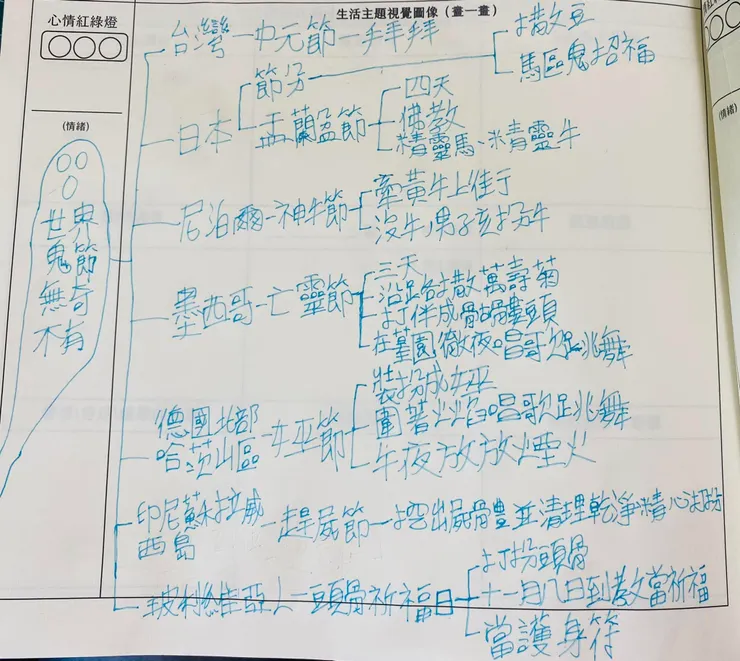 心情紅綠燈
生活主題視覺圖像(畫一畫)
(情緒)
世界
鬼節
無奇
不有
台灣-中元節-拜拜
日本
節分
撒豆
馬區鬼招福
盂蘭盆節
四天
佛教
精靈馬、精靈牛
尼泊爾-神牛節
牽黃牛上街
沒牛,男孩扮牛
墨西哥-亡靈節
三天
沿路撒萬壽菊
打伴成骷髏頭
在墓園徹夜唱哥跳舞
德國北部
哈茨山區
女巫節
裝扮成女巫
圍著火焰唱歌跳舞
午夜放放煙火
印尼蘇拉威
西島
趕屍節-挖出屍體並清理乾淨精心打扮
玻利維亞-頭骨祈福日
打扮頭骨
十一月八日到教堂祈福
當護身符
(情緒)